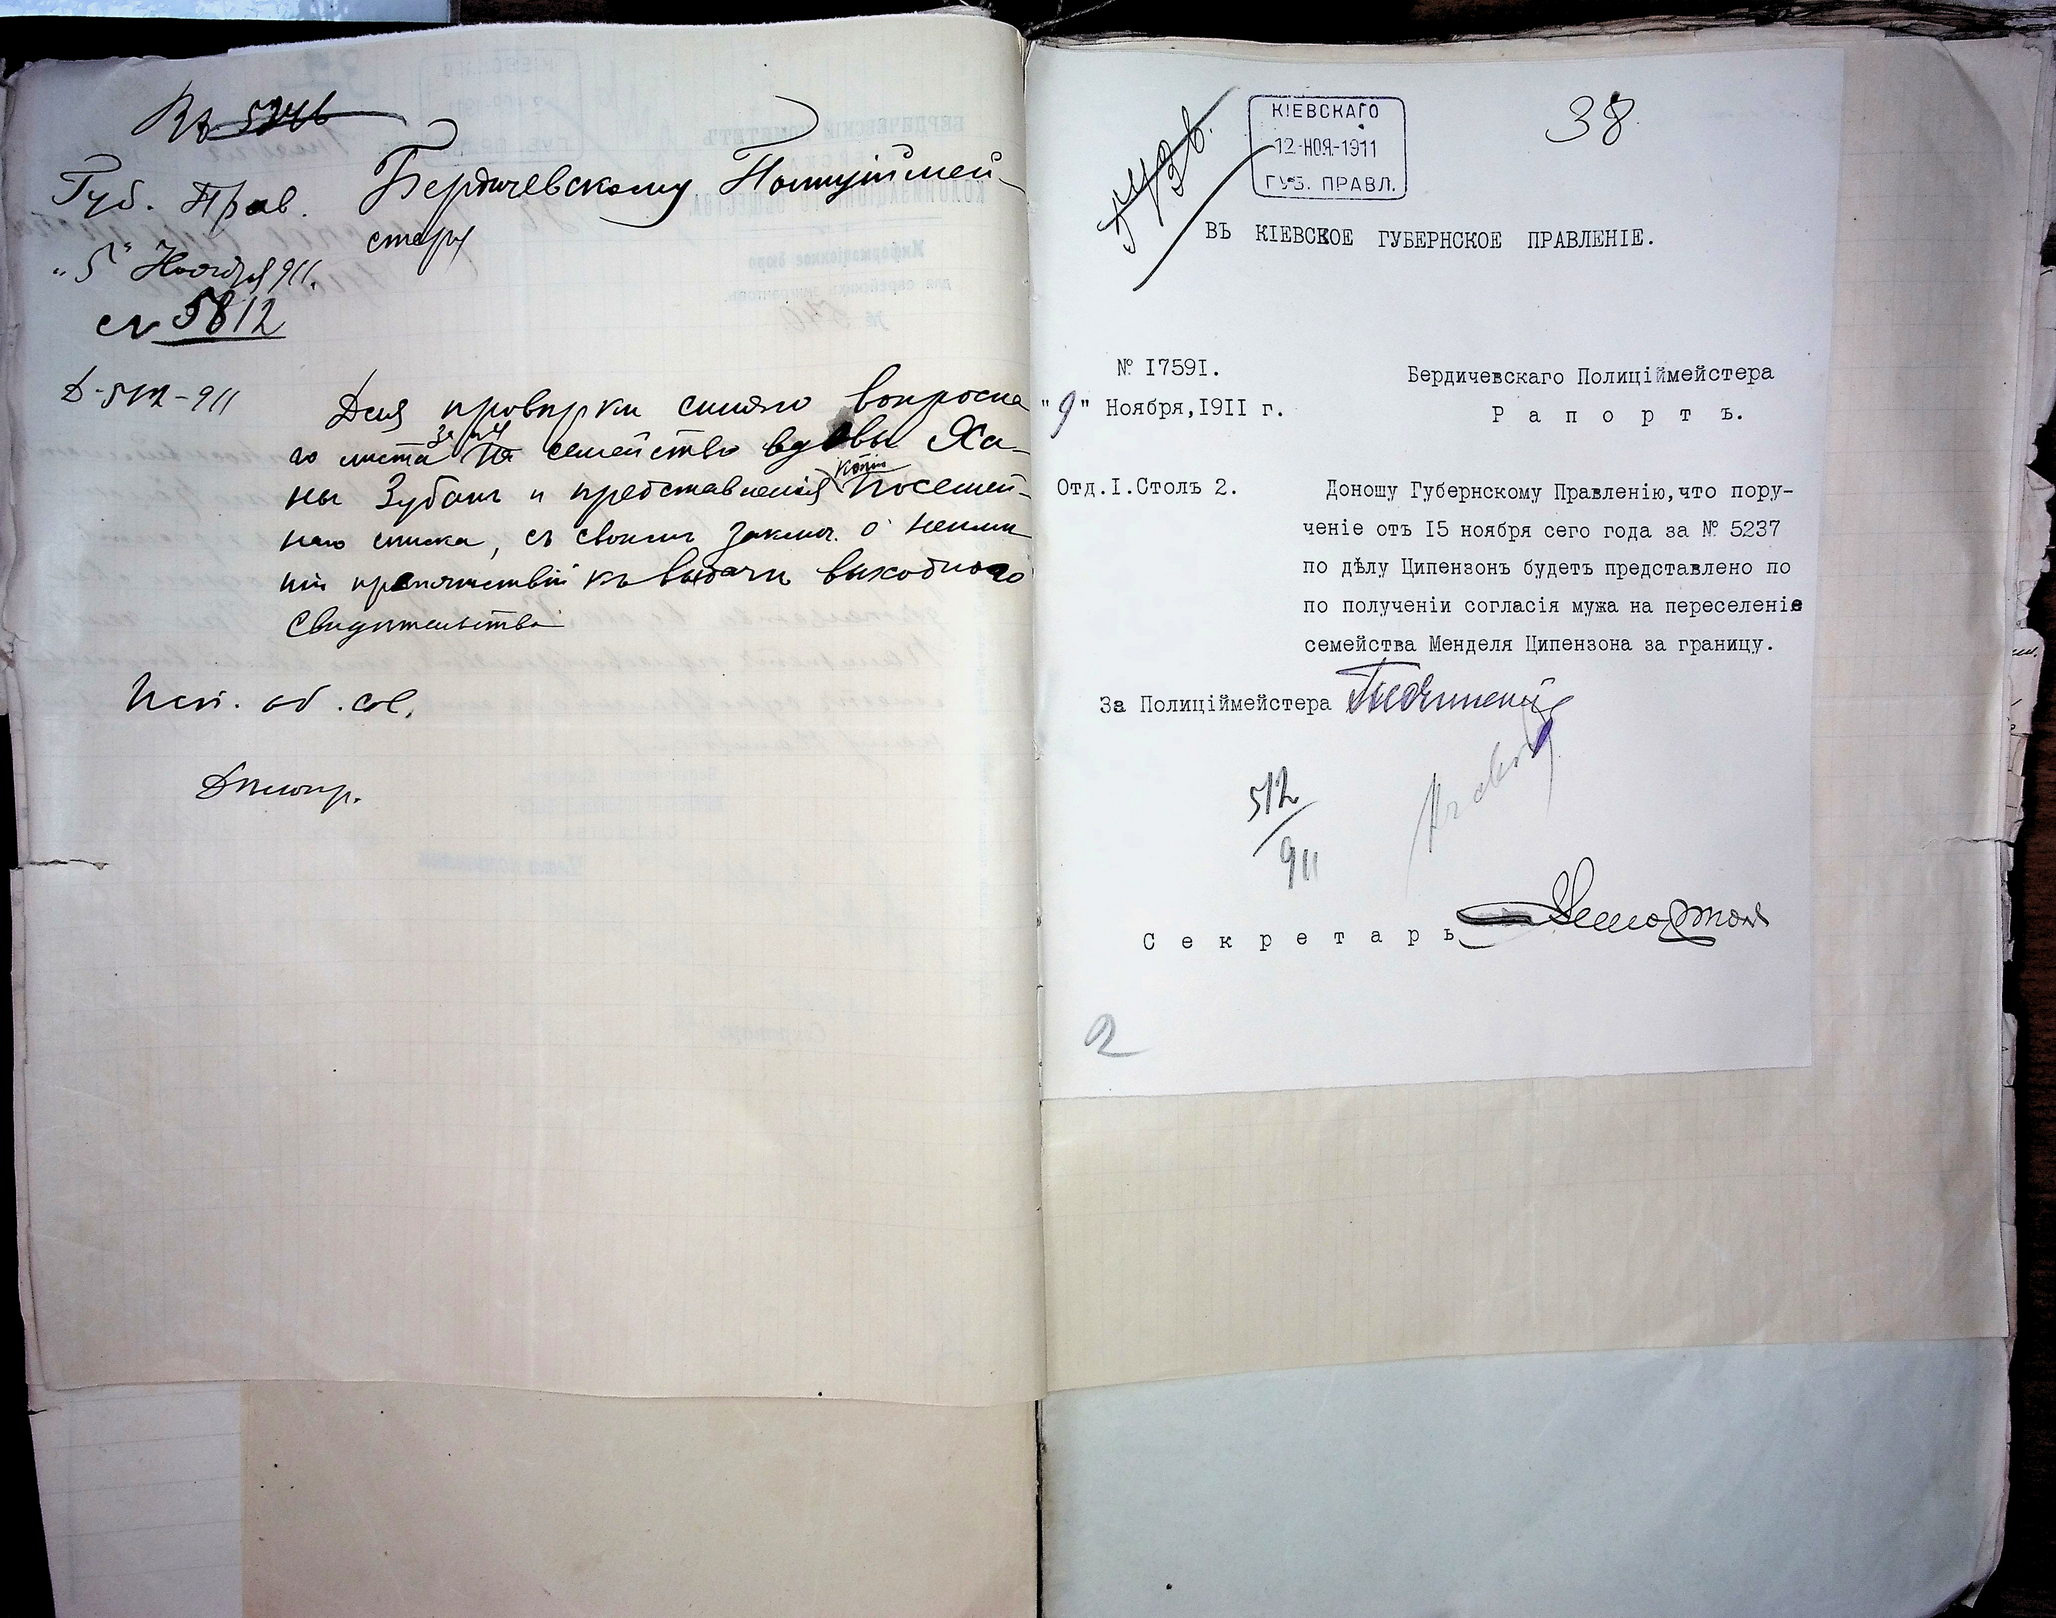 Къ 5246
Губ. Прав.
"5" Ноября 911.
№ 5812
Д-512-911
Бердичевскому Полиціймей-
стеру
Для провѣрки сего вопросна
го листа на семейство вдовы Ха-
ны Зубакъ и представленія копіи посемей-
наго списка, съ своимъ заключ. о неимѣ
ніи препятствій къ выдачѣ выходного
свидѣтельства
Исп. об. сов.
Дѣлопр.
КІЕВСКАГО
12-НОЯ-1911
ГУБ. ПРАВЛ.
38
ВЪ КІЕВСКОЕ ГУБЕРНСКОЕ ПРАВЛЕНІЕ.
№ I759I.
"9" Ноября,I9II г.
Бердичевскаго Полиціймейстера
Р а п о р т ъ.
Отд.I.Столъ 2.
Доношу Губернскому Правленію,что пору-
ченіе отъ I5 ноября сего года за № 5237
по дѣлу Ципензонъ будетъ представлено по
по полученіи согласія мужа на переселеніе
семейства Менделя Ципензона за границу.
За Полиціймейстера
512
911
С е к р е т а р ь
2